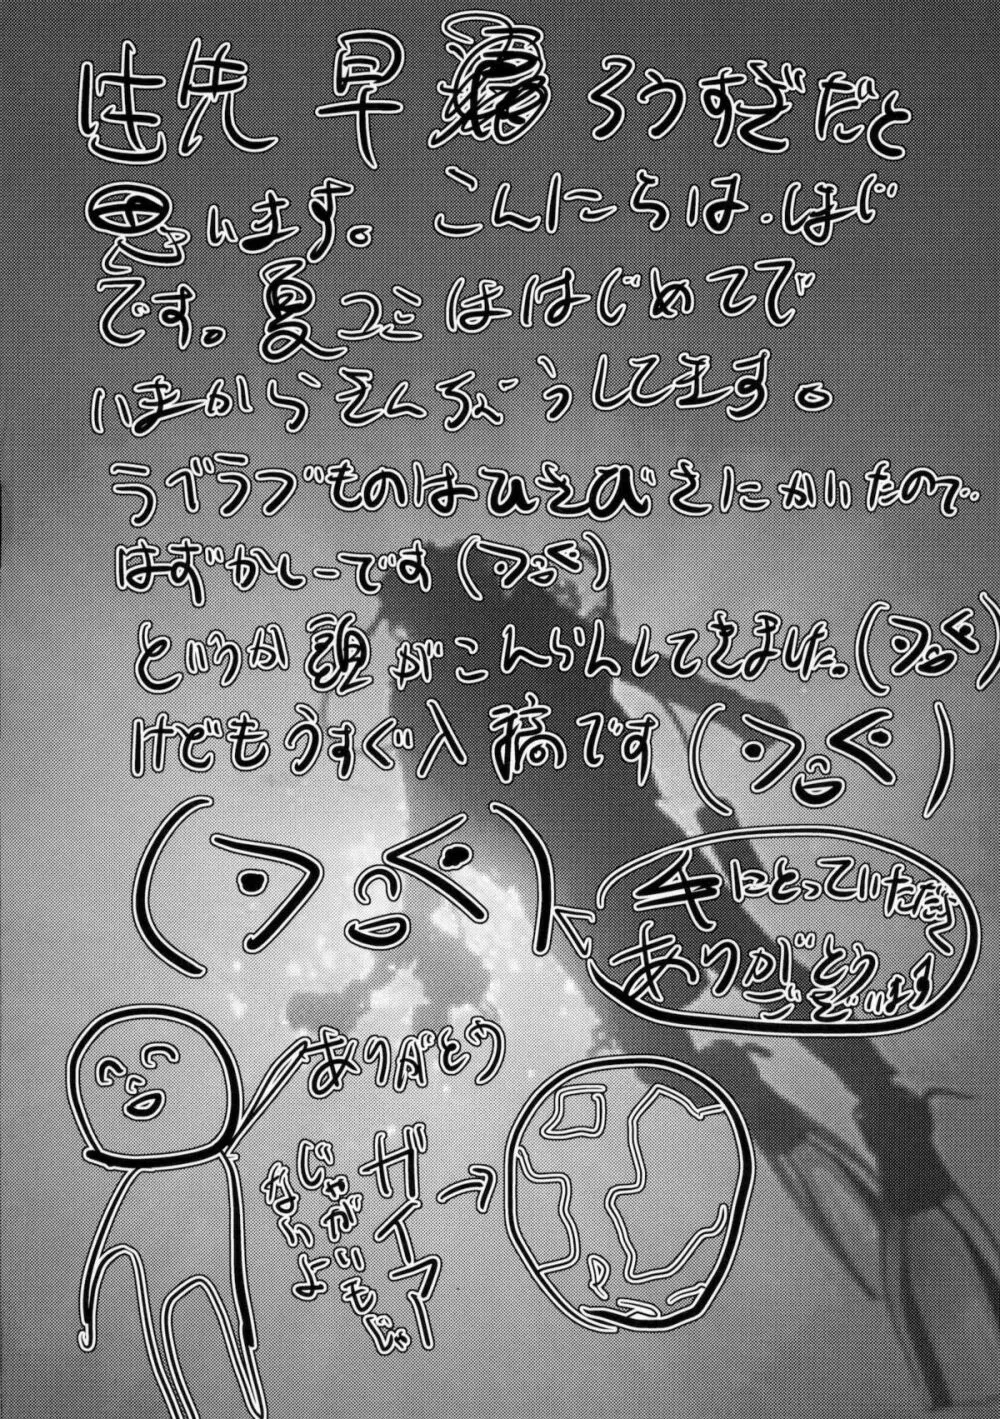 早 ろうすぎだと
思います。こんにちは．ほじ
です。夏コミははじめてで
いまからぞんぶうしてます。
ラブラブものはひさびさにかいたので
はずかしーです(フ ॢく)
というか頭がこんらんしてきました。
けどもうすぐ入稿です
手にとっていただき
ありがとう
ございます
ありがとう
ガイアー
じゃがいもじゃ
ないよ